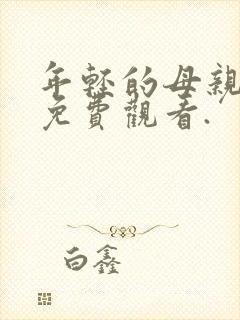 年轻的母親
免費觀看.
白鑫